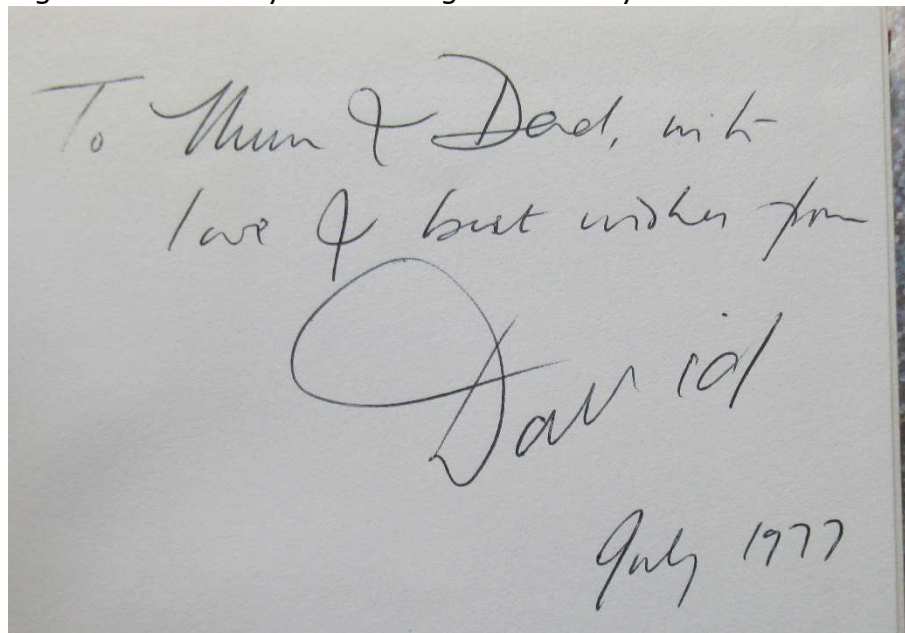 To Mum & Dad, with
love & best wishes from
David
July 1977